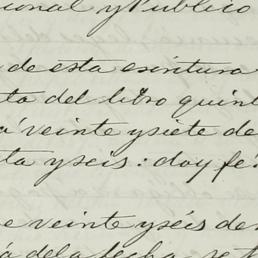 ional y Publico
de esta escritura
to del libro quint
á veinte ysiete de
ta yseis: doy fé
e veinte yséis de
á dela fecha se